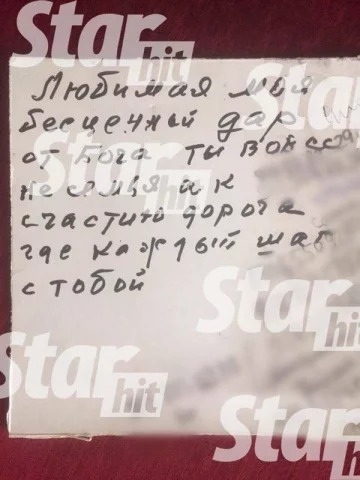 Star hit
Любимая моя
бесценный дар
от Бога ты
не
счастию дорога
где каждый шаг
с тобой
Star hit
Star hit
Star hit
Star hit